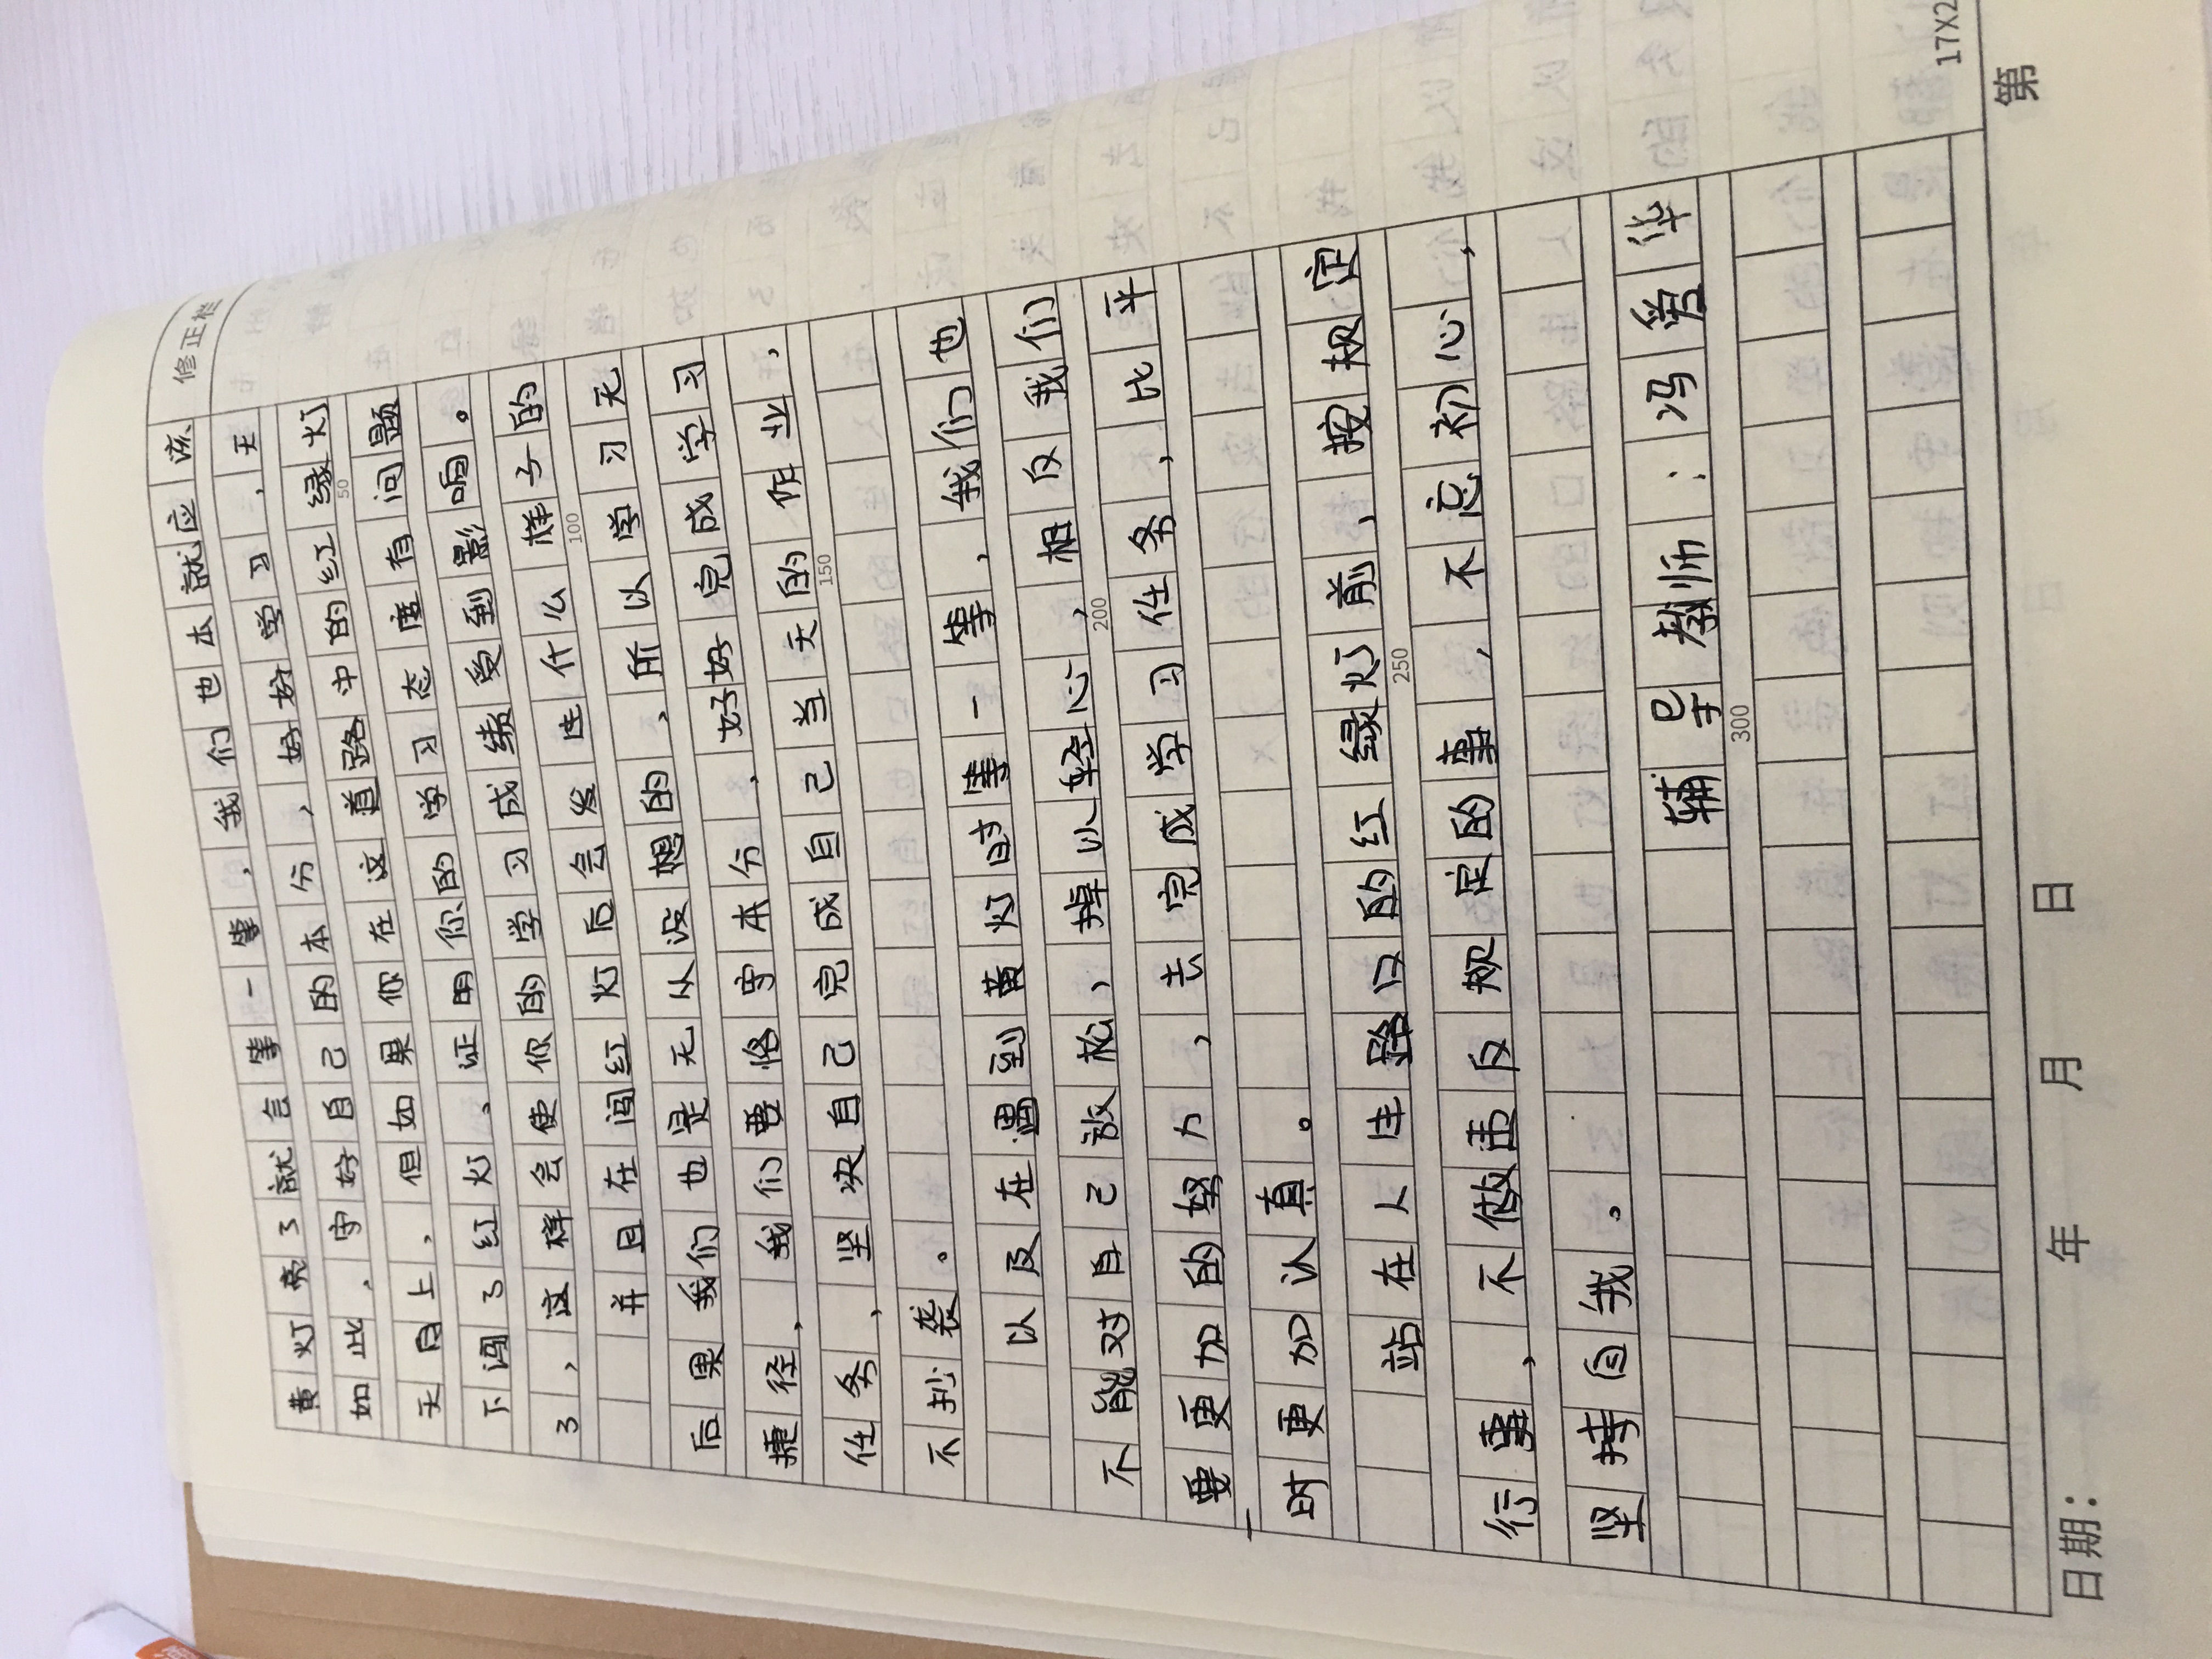 修正栏
黄灯亮了就会等一等，我们也本就应该
如此，守好自己的本分，好好学习，天
天向上，但如果你在这道路中的红绿灯
50
下闯了红灯，证明你的学习态度有问题
了，这样会使你的学习成绩受到影响。
并且在闯红灯后会发生什么样子的
100
后果我们也是无从没想的，所以学习无
捷径，我们要恪守本分，好好完成学习
任务，坚决自己完成自己当天的作业，
150
不抄袭。
以及在遇到黄灯时等一等，我们也
不能对自己放松，掉以轻心，相反我们
200
要更加的努力，去完成学习任务，比平
时更加认真。
站在人生路口的红绿灯前，按规定
250
行事，不做违反规定的事，不忘初心，
坚持自我。
辅导教师：冯爱华
300
17X2
日期： 年 月 日 第